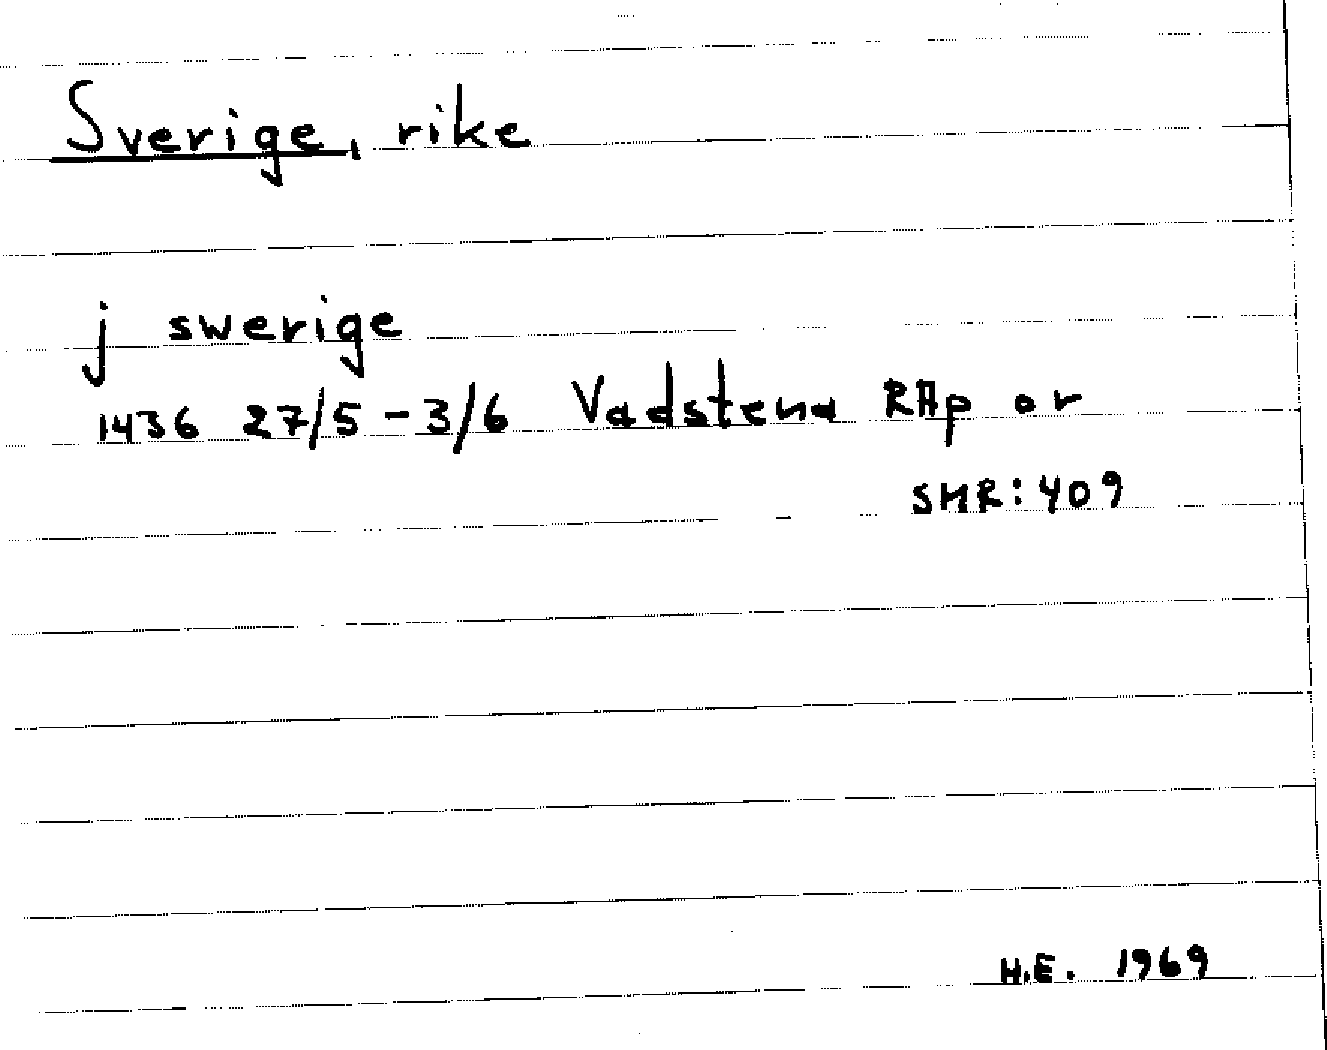 Sverige, rike
j swerige
1436 27/5 - 3/6 Vadstena RAp or
SMR: 409
H.E. 1969